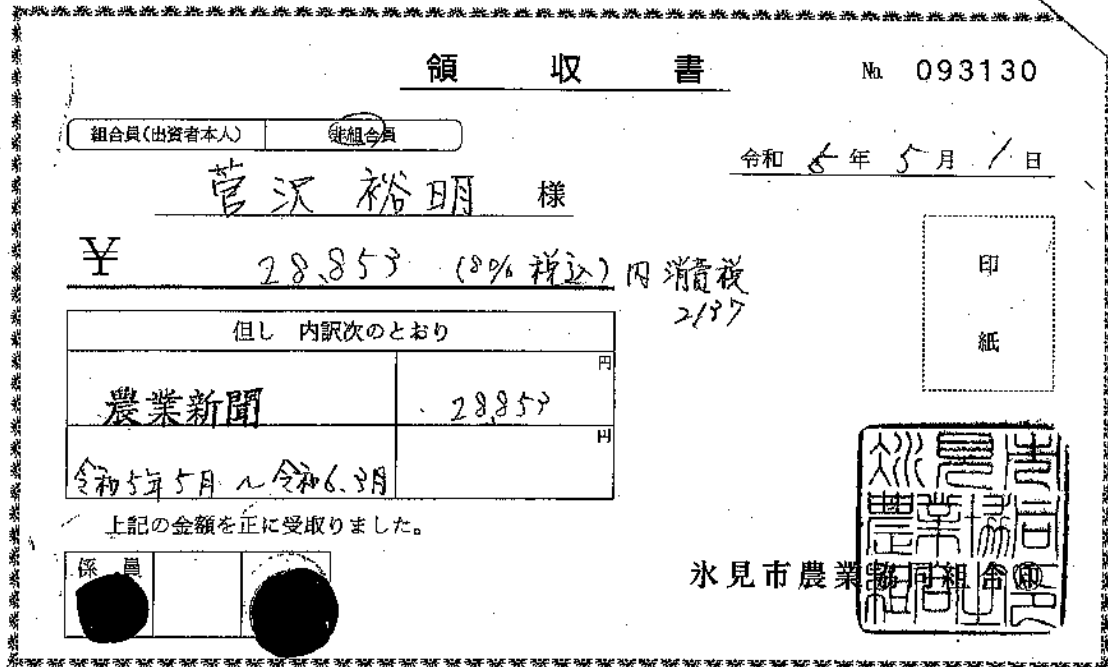 領収書 № 093130
組合員(出資者本人) 非組合員
令和 5 年 5 月 1 日
菅沢 裕明 様
¥ 28,853 (8% 税込) 円 消費税
2137
印
紙
但し 内訳次のとおり
円
農業新聞 28,853
円
令和5年5月 ~ 令和6.3月
上記の金額を正に受取りました。
係 員
氷見市農業協同組合㊞